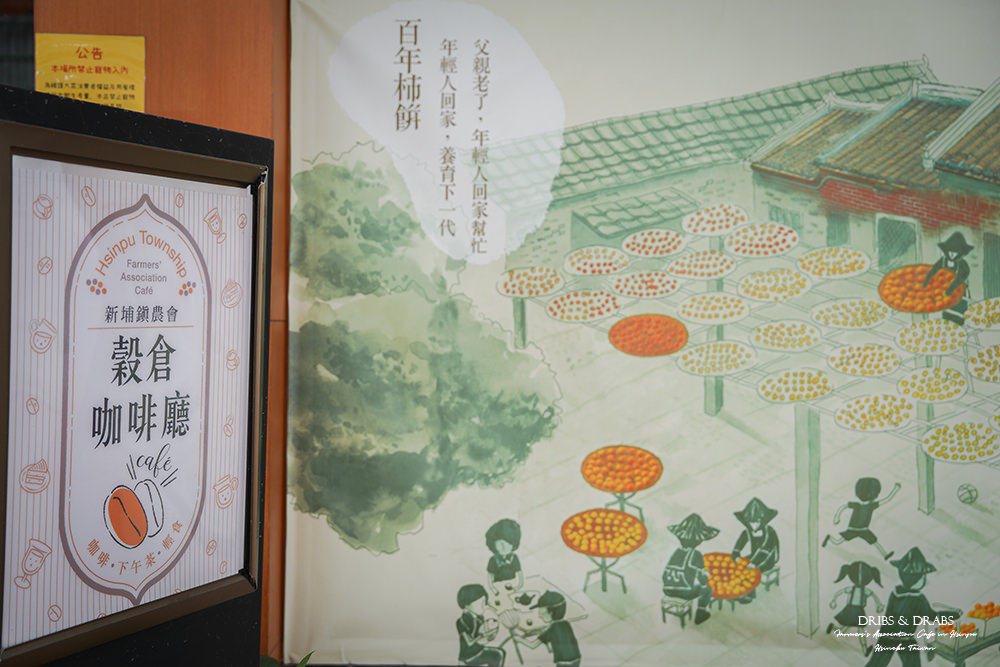 公告
本場所禁止寵物入內
Hsinpu Township
Farmers'
Association
Café
新埔鎮農會
穀倉
咖啡廳
café
咖啡•下午茶•輕食
百年柿餅
父親老了，年輕人回家幫忙
年輕人回家，養育下一代
DRIBS & DRABS
Farmers's Association Cafe in Hsinpu
Hsinchu Taiwan